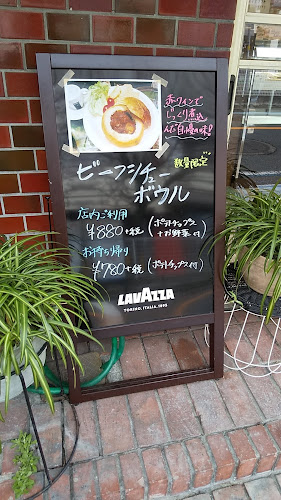 赤ワインで
じっくり煮込
んだ自慢の味!
数量限定
ビーフシチュー
ボウル
店内ご利用
¥880+税 (ポテトチップス
+お野菜付)
お持ち帰り
¥780+税 (ポテトチップス付)
LAVAZZA
TORINO, ITALIA, 1895